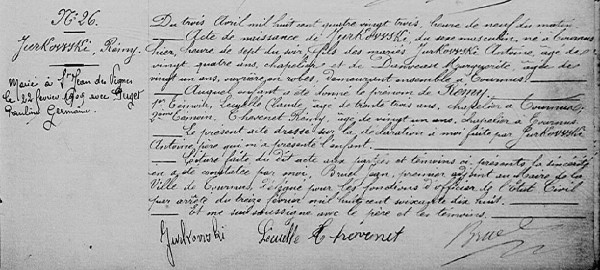 N° 26.
Jurkowski, Rémy
Marié à St Jean de Vignes
le 22 février 1909 avec Puget
Pauline Germaine.
Du trois Avril mil huit cent quatre vingt trois, heure de neuf du matin
Acte de naissance de Jurkowski, du sexe masculin, né à Tournus
hier, heure de sept du soir, fils des mariés Jurkowski Antoine, âgé de
vingt quatre ans, chapelier et de Marguerite, âgée de
vingt un ans, ouvrière en robes, demeurant ensemble à Tournus
Auquel enfant a été donné le prénom de Rémy.
1er Témoin, Lécuelle Claude, âgé de trente trois ans, chapelier à Tournus
2ème Témoin, Thevenet Rémy, âgé de vingt un ans, chapelier à Tournus.
Le présent acte dressé sur la déclaration à moi faite par Jurkowski
Antoine père qui m'a présenté l'enfant.
Lecture faite du dit acte aux parties et témoins ci présents, la sincérité
en a été constatée par moi, Bruel Jean, premier adjoint au Maire de la
Ville de Tournus, délégué pour les fonctions d'officier de l'État Civil
par arrêté du treize février mil huit cent soixante dix huit.
Et me suis soussigné avec le père et les témoins.
Jurkowski Lécuelle Thevenet Bruel